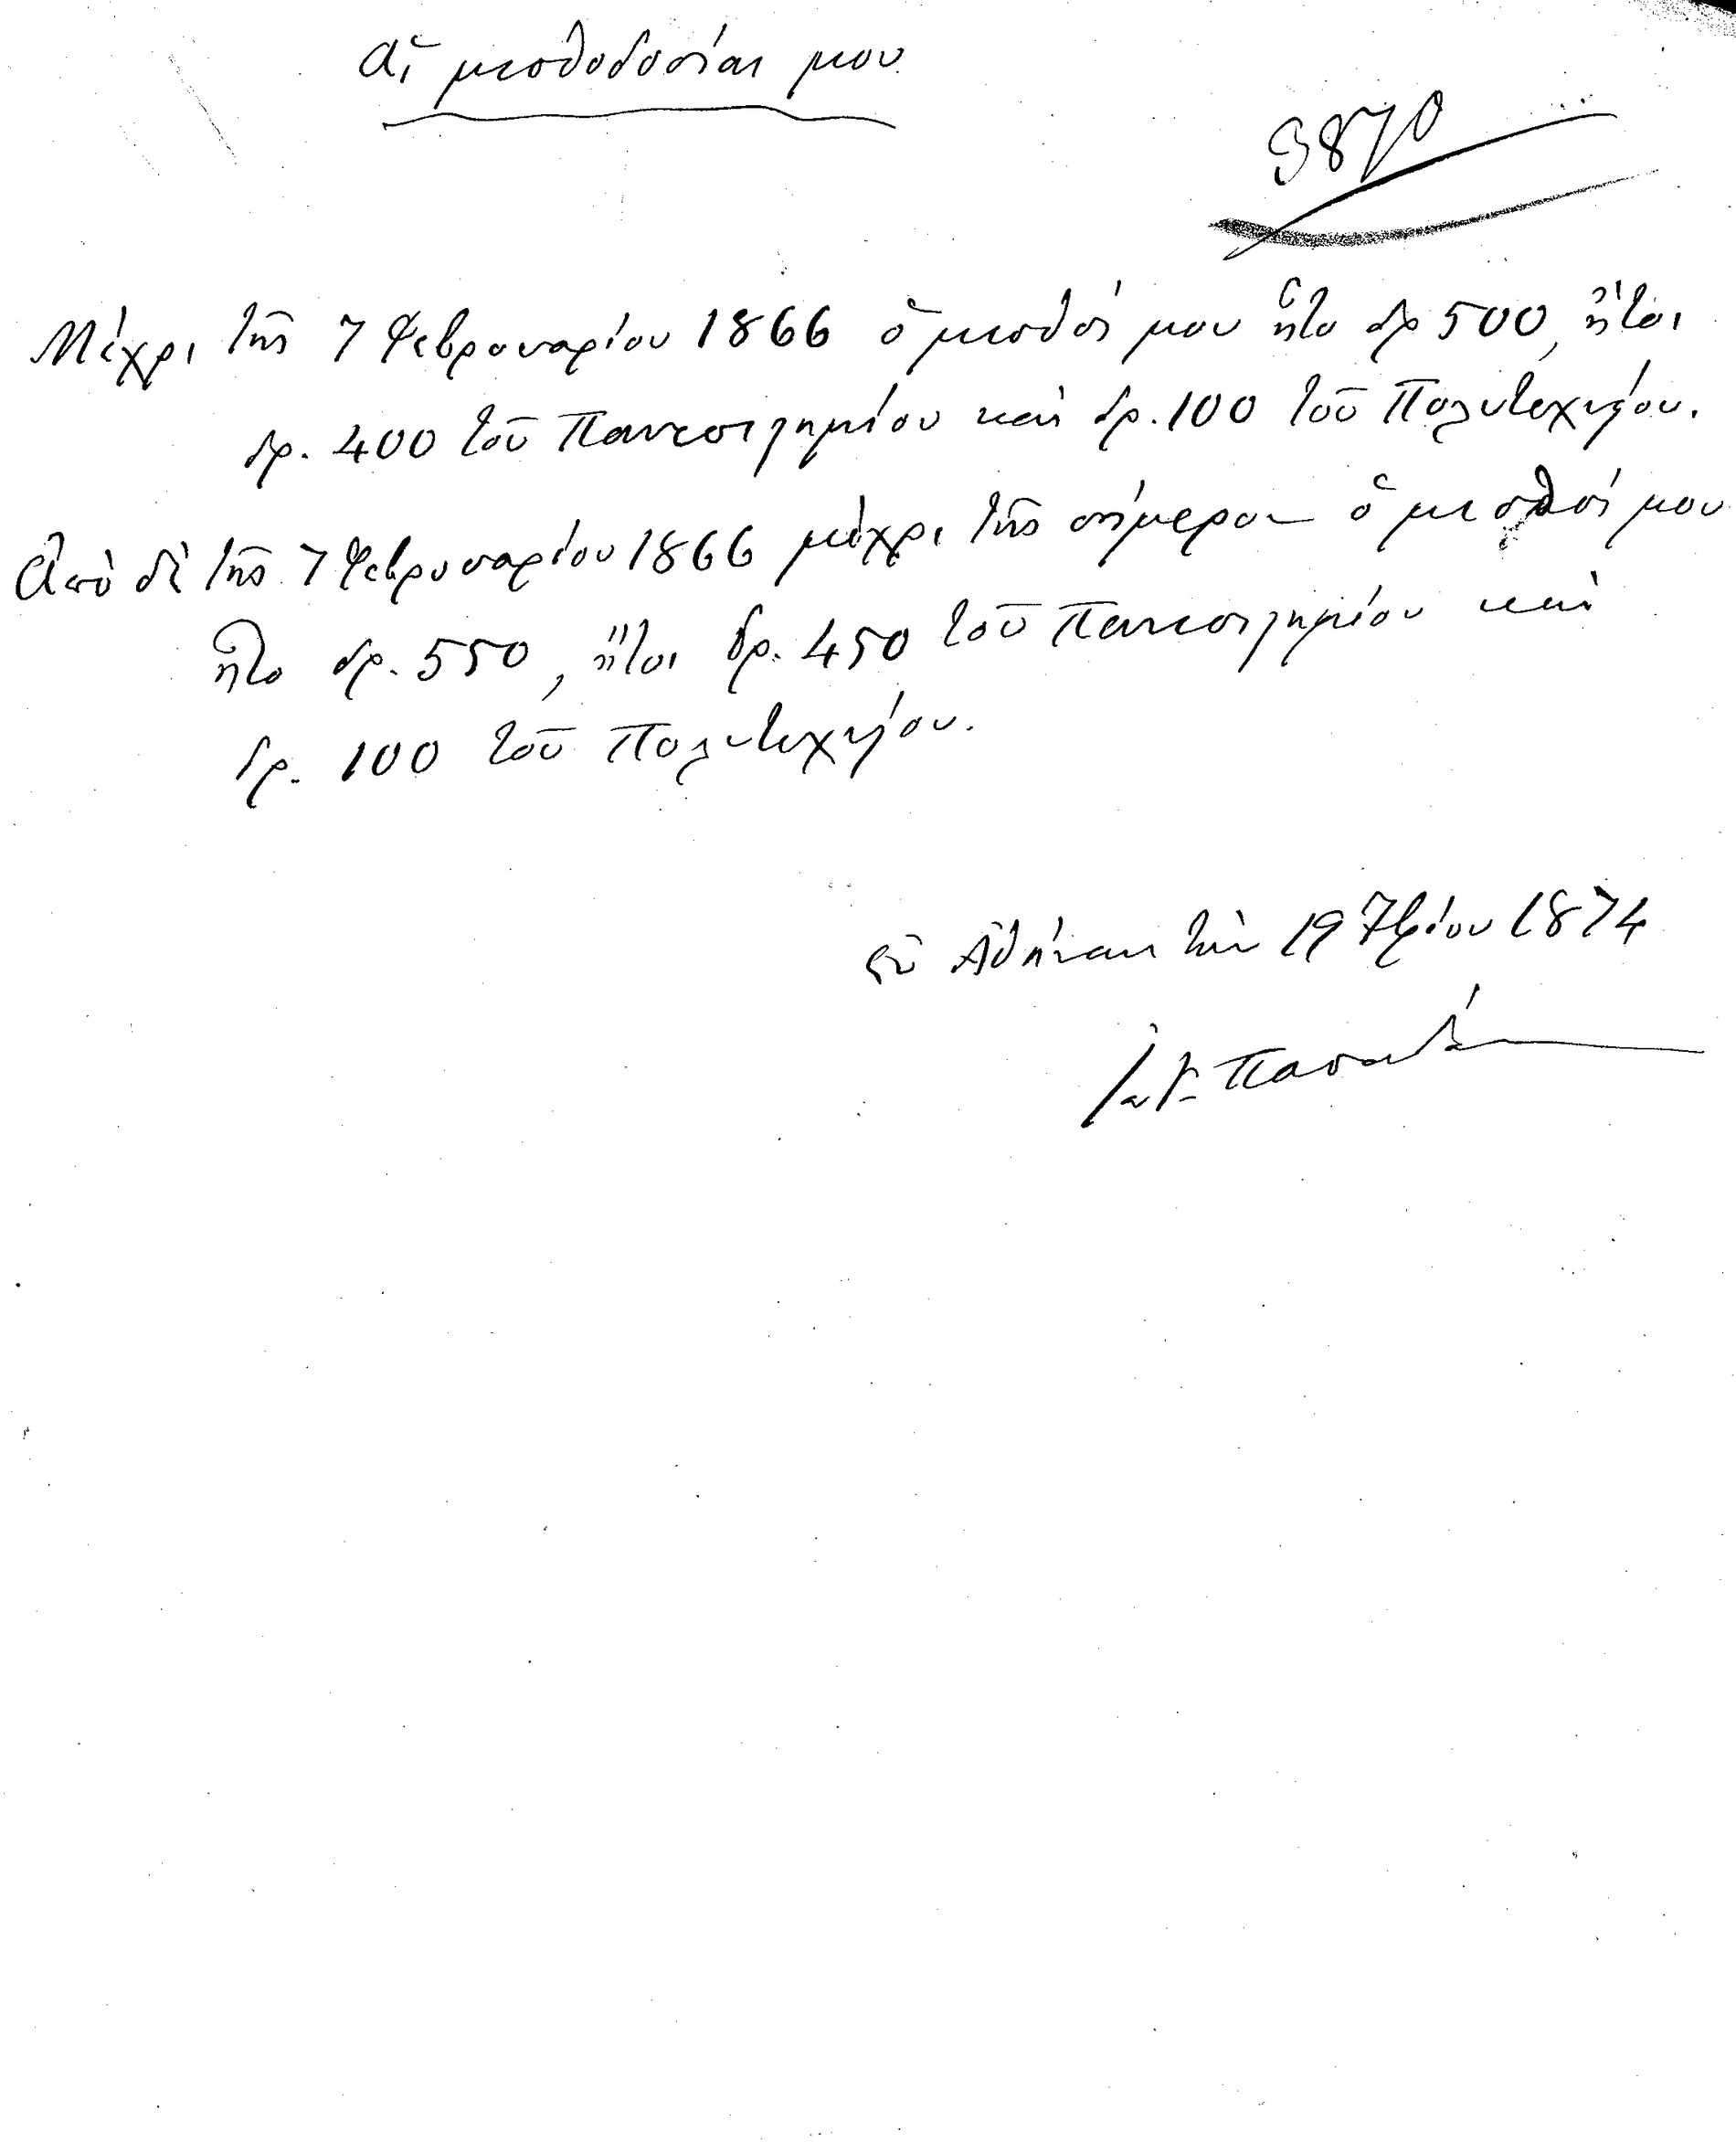 Αἱ μισθοδοσίαι μου
9870
Μέχρι τῆς 7 Φεβρουαρίου 1866 ὁ μισθός μου ἦτο δρ 500, ἤτοι
δρ. 400 τοῦ Πανεπιστημίου καὶ δρ. 100 τοῦ Πολυτεχνείου.
Ἀπὸ δὲ τῆς 7 Φεβρουαρίου 1866 μέχρι τῆς σήμερον ὁ μισθός μου
ἦτο δρ. 550, ἤτοι δρ. 450 τοῦ Πανεπιστημίου καὶ
δρ. 100 τοῦ Πολυτεχνείου.
ἐν Ἀθήναις τὴν 19 7βρίου 1874